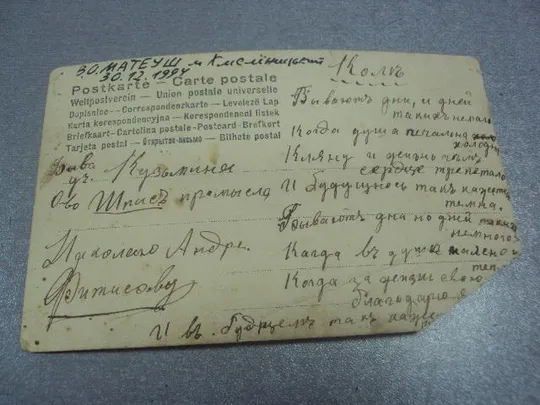 З.О. МАТЕУШ м Хмельницкий
30.12.1994
Postkarte — Carte postale
Weltpostverein — Union postale universelle
Dopisnice — Correspondenzkarte — Levelező Lap
Karta korespondencyjna — Korespondenci listek
Briefkaart — Cartolina postale — Postcard — Brefkort
Tarjeta postal — Открытое письмо — Bilhete postal
Колѣ
Бываютъ дни, и дней
такихъ немало
Когда душа печальна
холодна
Кляну и жизнь
сердце трепетало
И будущность такъ кажется
темна.
Бываютъ дни но дней такихъ
немного
Когда въ душѣ
Когда за жизнь свою
благодарю
И въ такъ
Кузьмина
Ово Шписъ промысла
Николаю Андре.
Фитисову